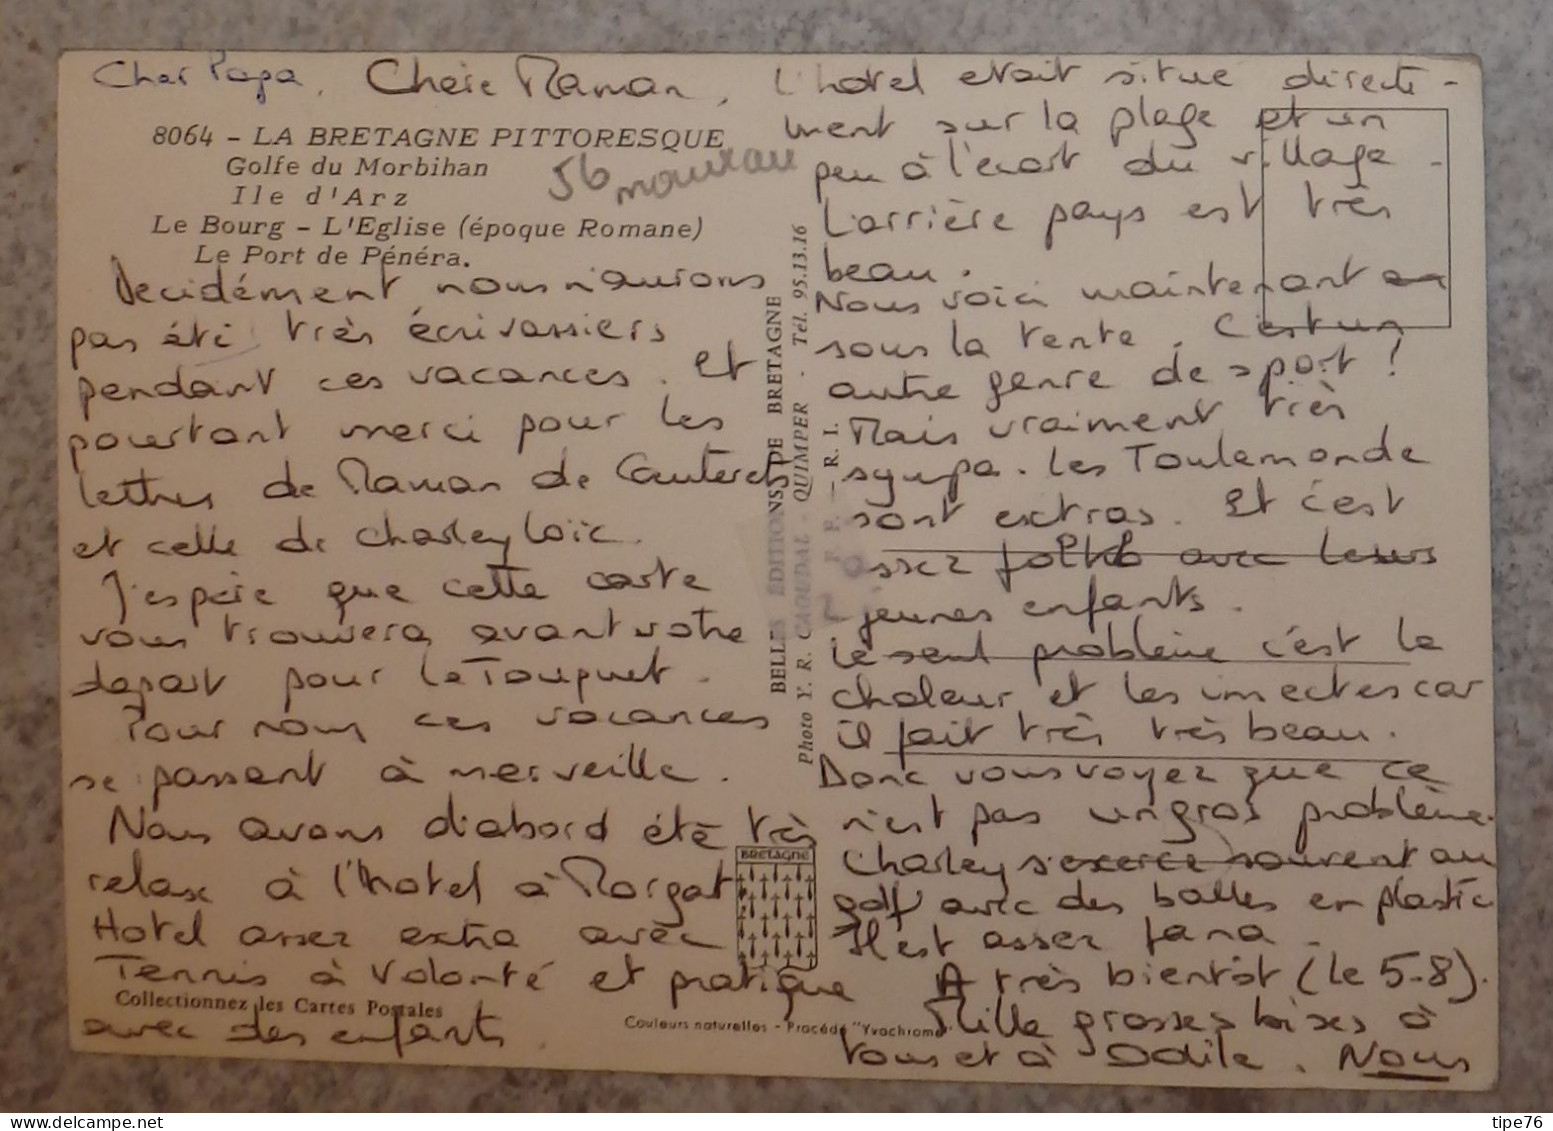 Cher Papa, Chère Maman,
8064 - LA BRETAGNE PITTORESQUE
Golfe du Morbihan
Ile d'Arz
Le Bourg - L'Eglise (époque Romane)
Le Port de Pénéra.
56 morbihan
Decidément nous n'aurons
pas été très écrivassiers
pendant ces vacances. Et
pourtant merci pour les
lettres de Maman de Cauterets
et celle de Charley Loïc.
J'espère que cette carte
vous trouvera avant votre
depart pour Le Touquet.
Pour nous ces vacances
se passent à merveille.
Nous avons d'abord été très
relax à l'hotel à Morgat
Hotel assez extra avec
Tennis à volonté et pratique
avec des enfants.
Collectionnez les Cartes Postales
BRETAGNE
Couleurs naturelles - Procédé "Yvochrome"
BELLES ÉDITIONS DE BRETAGNE
Photo Y. R. CAOUDAL - QUIMPER - Tél. 95.13.16
L'hotel etait situe directe-
ment sur la plage et un
peu à l'ecart du village.
L'arrière pays est très
beau.
Nous voici maintenant
sous la tente. C'est un
autre genre de sport !
Mais vraiment très
sympa. Les Toulemonde
sont extras. Et c'est
assez avec leurs
jeunes enfants.
Le seul problème c'est la
chaleur et les insectes car
il fait très très beau.
Donc vous voyez que ce
n'est pas un gros problème.
Charley s'exerce souvent au
golf avec des balles en plastic
Il est assez fana.
A très bientôt (le 5-8).
Mille grosses bises à
vous et à Odile. Nous